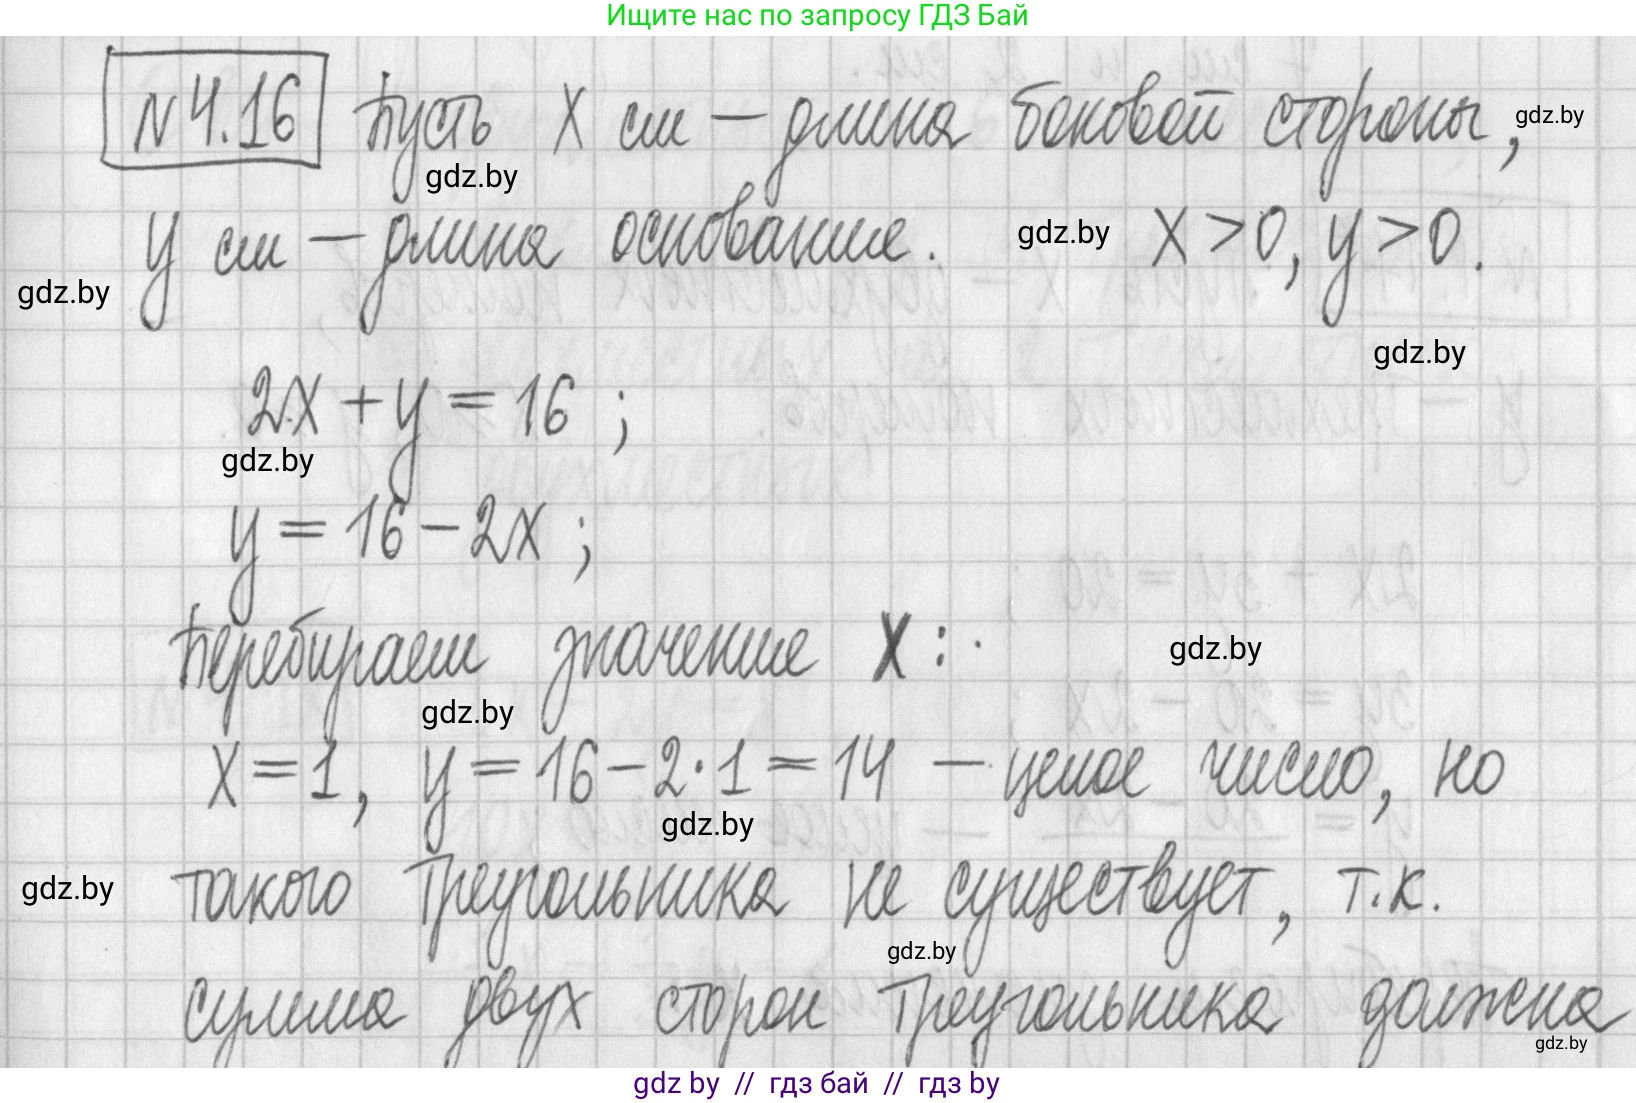 Ищите нас по запросу ГДЗ Бай
№4.16 Пусть x см — длина боковой стороны, gdz.by
gdz.by
y см — длина основание. gdz.by x > 0, y > 0.
gdz.by
gdz.by
2x + y = 16 ;
gdz.by
y = 16 - 2x ;
Перебираем значение x : gdz.by
gdz.by
x = 1, y = 16 - 2 · 1 = 14 — целое число, но
gdz.by
gdz.by такого треугольника не существует, т.к.
gdz.by
сумма двух сторон треугольника должна
gdz.by
gdz by // гдз бай // гдз by